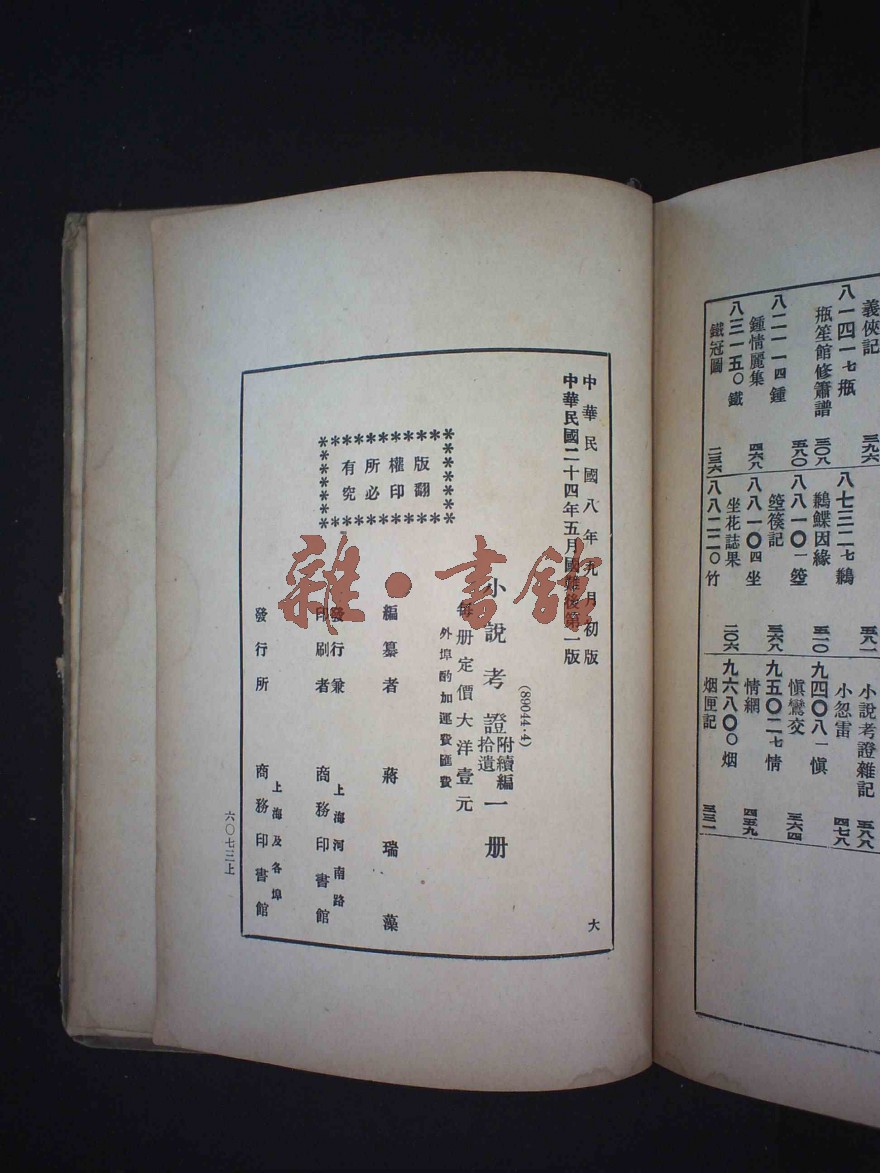 義俠記 三九六
八一四一七瓶
瓶笙館修簫譜 三〇八
五八〇
八二一一四鍾
鍾情麗集 四六八
八三一五〇鐵
鐵冠圖 二三六
三八一
八七三二七鶼
鶼鰈因緣 三一〇
八八一〇一箜
箜篌記 三六八
八八一〇四坐
坐花誌果 二〇六
八八二二〇竹
小說考證雜記 五八八
小忽雷 四七八
九四〇八一愼
愼鸞交 三六四
九五〇二七情
情網 四五九
九六八〇〇烟
烟匣記 三三一
中華民國八年九月初版
中華民國二十四年五月國難後第一版
大
(89044·4)
小說考證附續編拾遺一册
每册定價大洋壹元
外埠酌加運費匯費
版權所有
翻印必究
編纂者 蔣瑞藻
發行兼印刷者 上海河南路 商務印書館
發行所 上海及各埠 商務印書館
六〇七三上
雜·書館